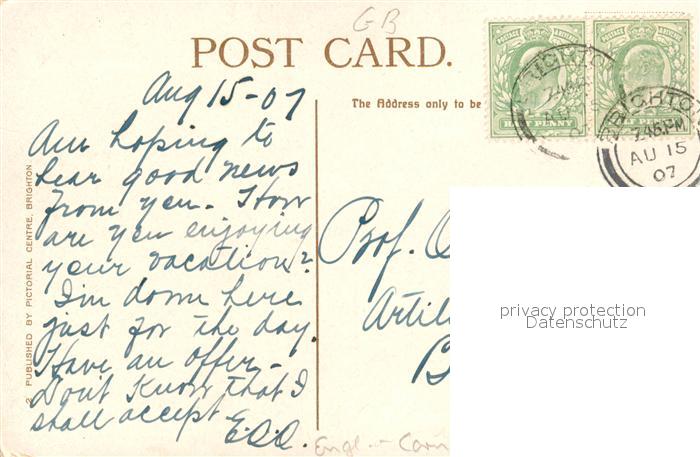 GB
POST CARD.
Aug 15-07
The Address only to be
POSTAGE
HALFPENNY
BRIGHTON
7.45 PM
AU 15
07
Am hoping to
hear good news
from you - How
are you enjoying
your vacation?
I'm down here
just for the day.
Have an offer -
Don't Know that I
shall accept
E.C.O.
Prof. O
Artil
B
2 PUBLISHED BY PICTORIAL CENTRE, BRIGHTON
privacy protection
Datenschutz
Engl.